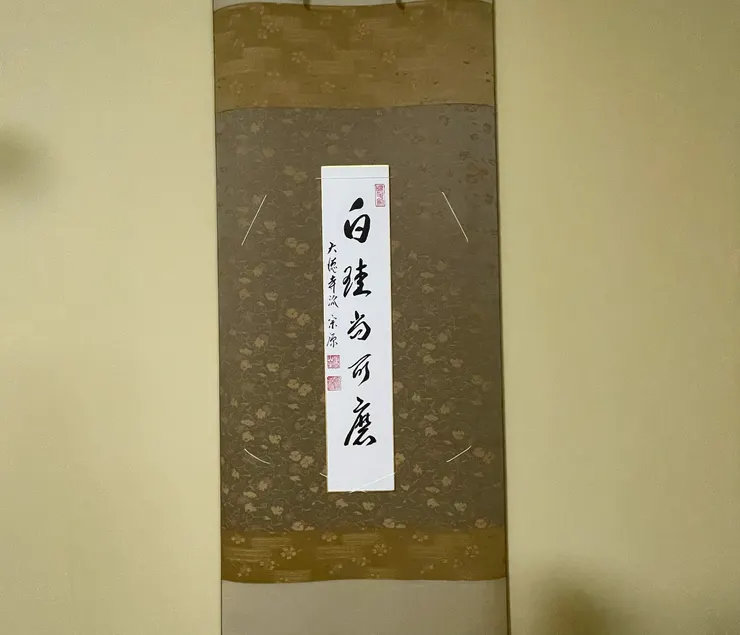 白珪尚可磨
大徳寺派 宗原